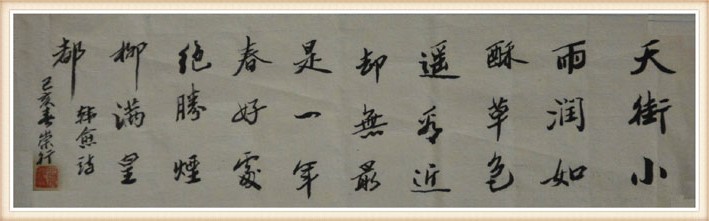 天街小
雨润如
酥草色
遥看近
却無最
是一年
春好處
絶勝煙
柳满皇
都
韩愈詩
己亥春崇行